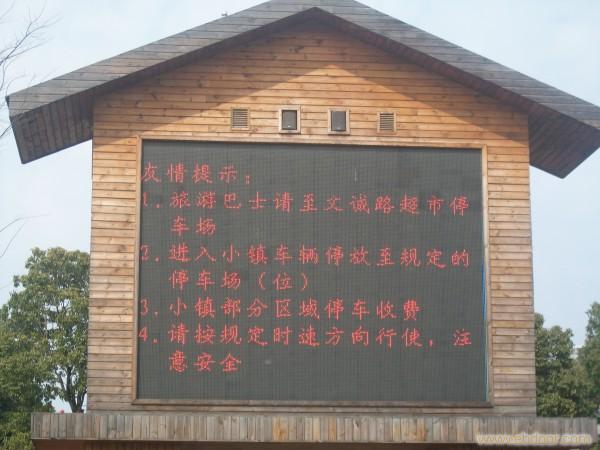 友情提示：
1.旅游巴士请至文诚路超市停
车场
2.进入小镇车辆停放至规定的
停车场（位）
3.小镇部分区域停车收费
4.请按规定时速方向行使，注
意安全